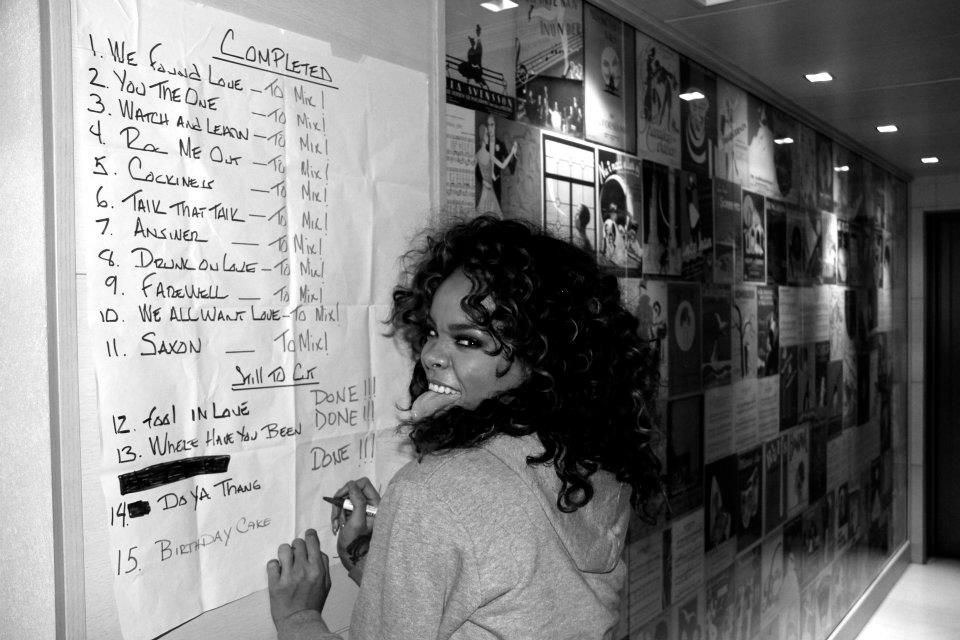 COMPLETED
1. WE FOUND LOVE – TO MIX!
2. YOU THE ONE – TO MIX!
3. WATCH AND LEARN – TO MIX!
4. ROC ME OUT – TO MIX!
5. COCKINESS – TO MIX!
6. TALK THAT TALK – TO MIX!
7. ANSWER — TO MIX!
8. DRUNK ON LOVE – TO MIX!
9. FAREWELL — TO MIX!
10. WE ALL WANT LOVE – TO MIX!
11. SAXON — TO MIX!
STILL TO CUT
12. FOOL IN LOVE DONE!!!
13. WHERE HAVE YOU BEEN DONE!!!
14. DO YA THANG DONE!!!
15. BIRTHDAY CAKE
SVENSSON